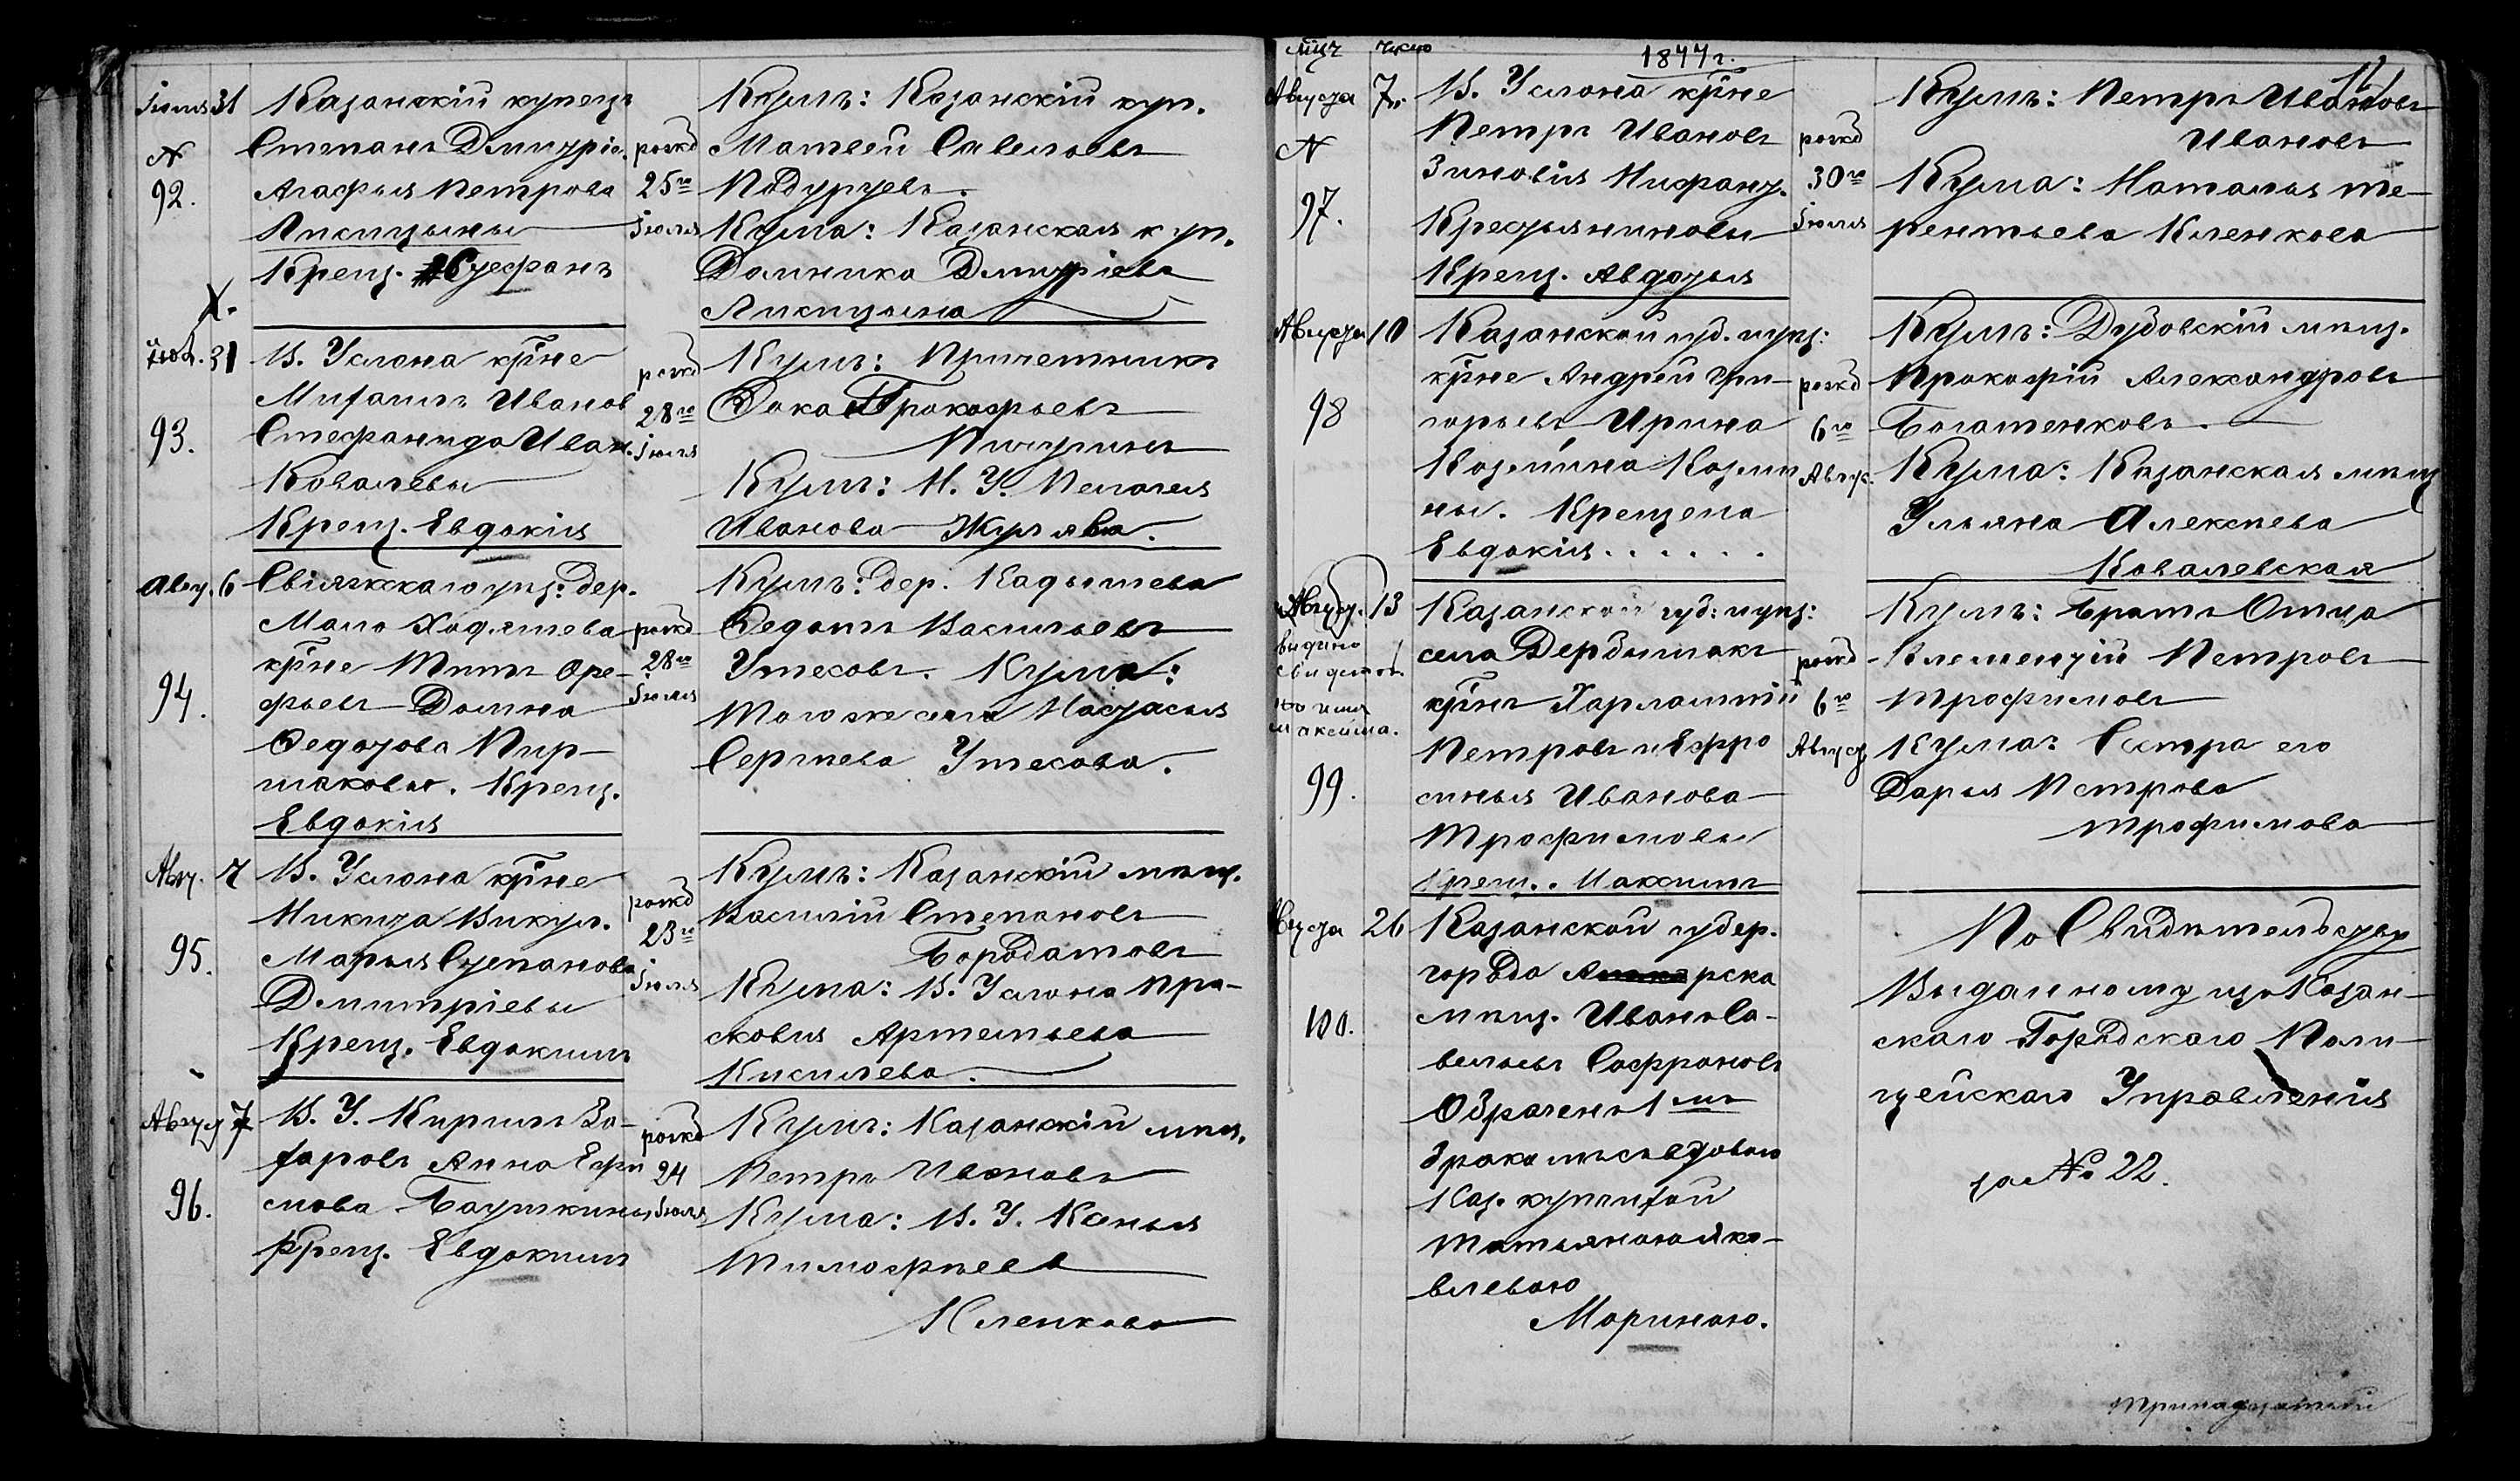 Іюля 31
Казанскій купецъ
Степанъ Дмитріе.
Агафья Петрова
Лисицыны
Крещ. Стефанъ
N
92.
рожд
25го
Іюля
Кумъ: Казанскій куп.
Матвей Савельевъ
Подуруевъ.
Кума: Казанская куп.
Домника Дмитріева
Лисицына
X.
Іюл. 31
93.
В. Услона кр̄не
Михаилъ Иванов
Стефанида Иван.
Ковалевы
Крещ. Евдокія
рожд
28го
Іюля
Кумъ: Причетникъ
Фока Прокофьевъ
Пичугинъ
Кума: Н. У. Пелагея
Иванова
Авгу. 6
94.
Свіяжскаго уѣз: дер.
Мало Ходяшева
кр̄не Титъ Оре-
фьевъ Домна
Федотова Пир-
маковы. Крещ.
Евдокія
рожд
28го
Іюля
Кумъ: дер. Кадышева
Федотъ Васильевъ
Утесовъ. Кума:
Того же села Настасья
Сергѣева Утесова.
Авгу. 7
95.
В. Услона кр̄не
Никита Викул.
Марья Степанова
Дмитріевы
Крещ. Евдокимъ
рожд
23го
Іюля
Кумъ: Казанскій мѣщ.
Василій Степановъ
Бородатовъ
Кума: В. Услона Пра-
сковья Артемьева
Киселева.
Август 7
96.
В. У. Кирилъ За-
харовъ Анна Ефи
мова Баушкины
Крещ. Евдокимъ
рожд
24
Іюля
Кумъ: Казанскій мѣщ.
Петръ Ивановъ
Кума: В. У. Ксенья
Тимофѣева
Кленкова
мцъ число
1877 г.
Августа 7
N
97.
В. Услона кр̄не
Петръ Ивановъ
Зиновія Нифант.
Крестьяниновы
Крещ. Авдотья
рожд
30го
Іюля
Кумъ: Петръ Ивановъ
Ивановъ
Кума: Наталья Те-
рентьева Кленкова
Августа 10
98
Казанской губ. и уѣз:
кр̄не Андрей Гри-
горьевъ, Ирина
Козмина Козми
ны. Крещена
Евдокія......
рожд
6го
Авгус.
Кумъ: Дубовскій мѣщ.
Прокофій Александровъ
Богатенковъ.
Кума: Казанская мѣщ
Ульяна Алексѣева
Ковалевская
Август. 13
видано
свидѣтел
на имя
Максима.
99.
Казанской губ: и уѣз:
села Дербышакъ
кр̄нъ Харлампій
Петровъ и Ефро
синья Иванова
Трофимовы
Крещ.. Максимъ
рожд
6го
Август
Кумъ: Братъ Отца
Климентій Петровъ
Трофимовъ
Кума: Сестра его
Дарья Петрова
Трофимова
Августа 26
100.
Казанской губер.
города рска
мѣщ. Иванъ Са-
вельевъ Сафроновъ
Обрачен 1мъ
бракомъ съ вдовою
Каз. купчихой
Татьяною Яко-
влевою
Мариною.
По Свидѣтельству
Выданному изъ Казан-
скаго Городскаго Поли-
цейскаго Управленія
за № 22.
тринадцатый